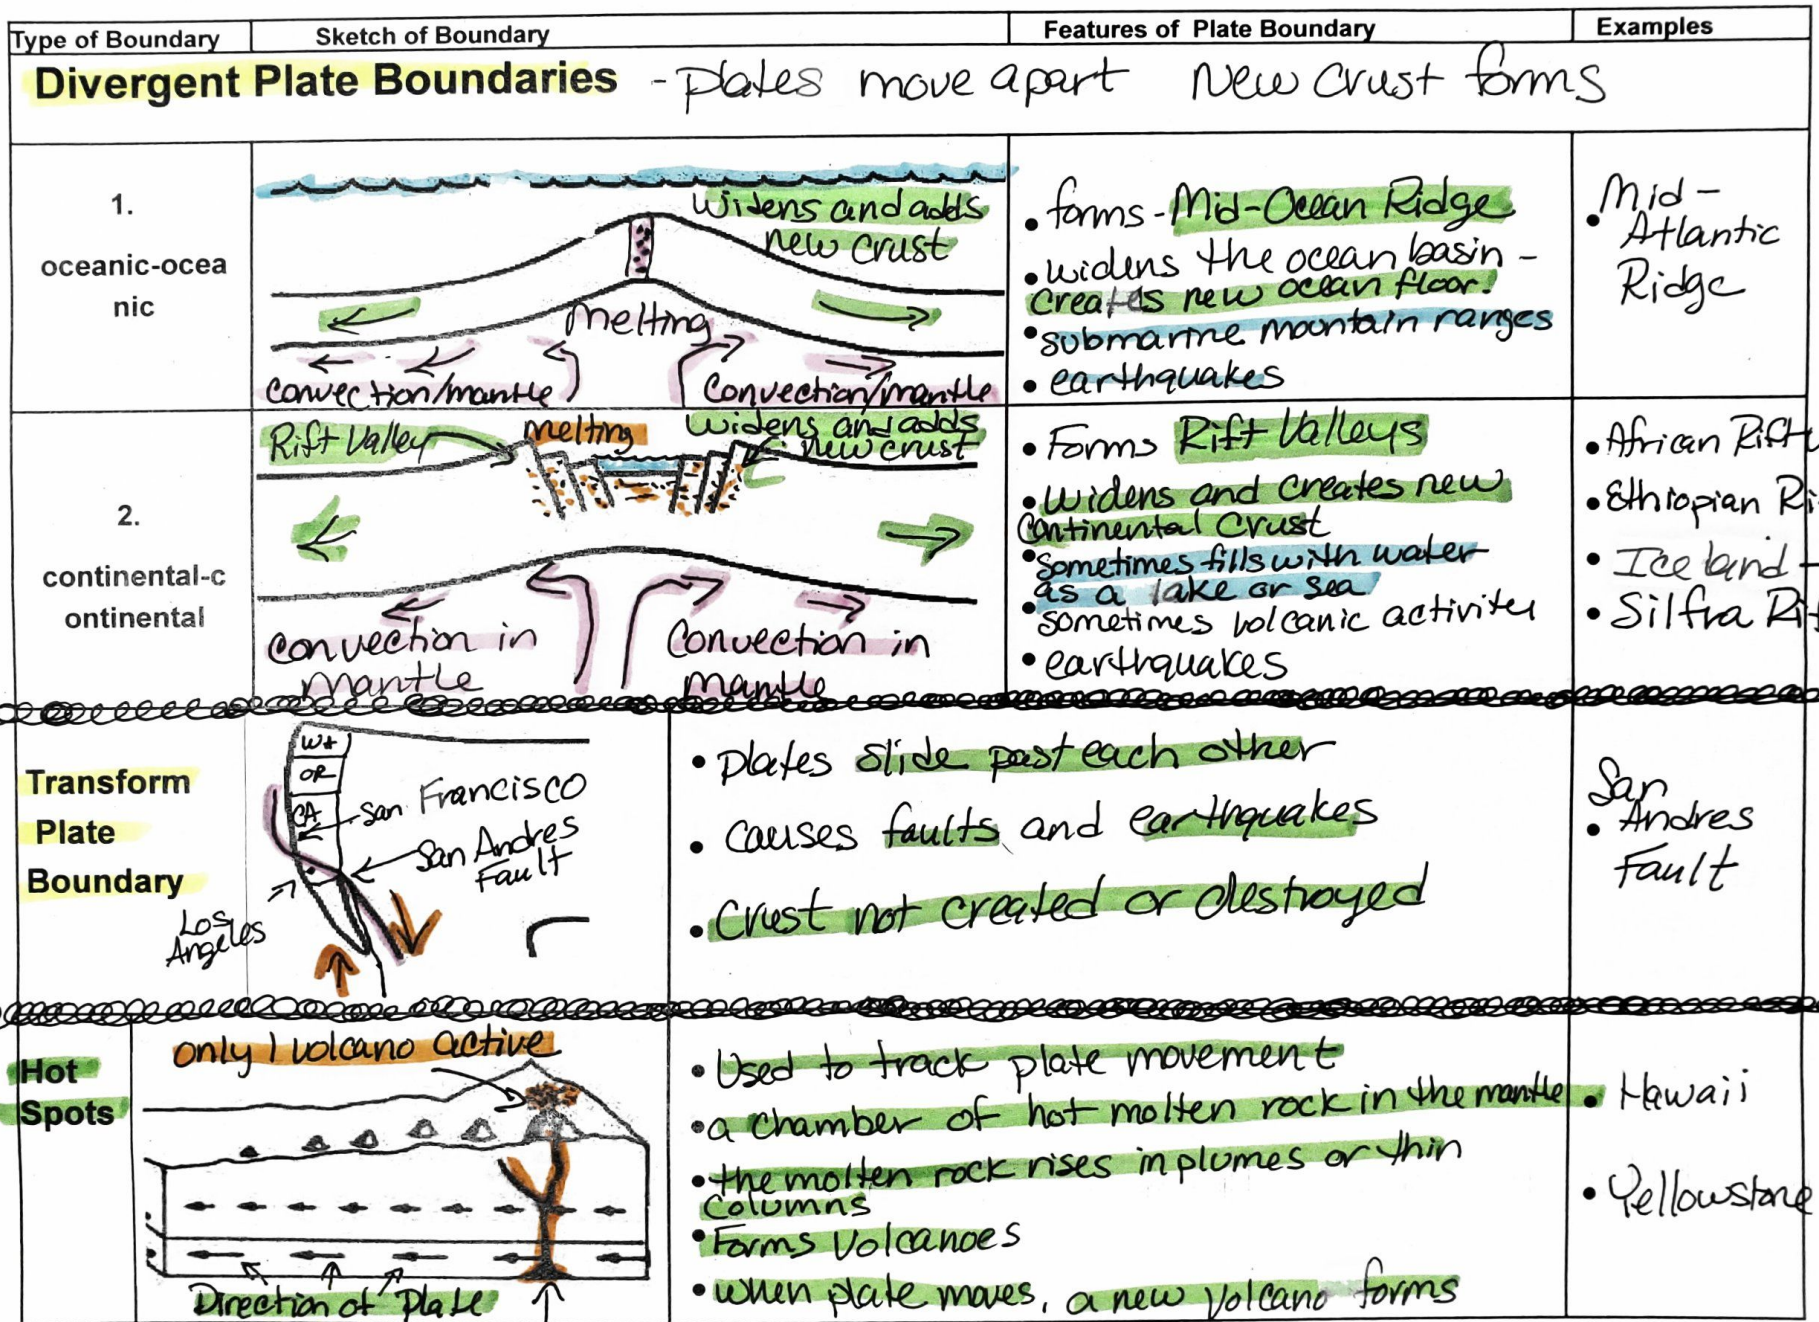 Type of Boundary Sketch of Boundary Features of Plate Boundary Examples
Divergent Plate Boundaries - plates move apart New Crust forms
1.
oceanic-ocea
nic
widens and adds
new crust
melting
convection/mantle Convection/mantle
• forms - Mid-Ocean Ridge
• widens the ocean basin -
creates new ocean floor!
• submarine mountain ranges
• earthquakes
Mid-
• Atlantic
Ridge
2.
continental-c
ontinental
Rift Valley melting widens and adds
new crust
Convection in
mantle
Convection in
mantle
• Forms Rift Valleys
• widens and creates new
Continental Crust
• sometimes fills with water
as a lake or sea
• sometimes volcanic activites
• earthquakes
• African Rift
• Ethiopian Ri
• Iceland -
• Silfra Rif
Transform
Plate
Boundary
WA
OR
CA
San Francisco
San Andres
Fault
Los
Angeles
• plates slide past each other
• causes faults and earthquakes
• Crust not created or destroyed
San
• Andres
Fault
Hot
Spots
only 1 volcano active
Direction of Plate
• Used to track plate movement
• a chamber of hot molten rock in the mantle
• the molten rock rises in plumes or thin
columns
• Forms Volcanoes
• when plate moves, a new volcano forms
• Hawaii
• Yellowstone